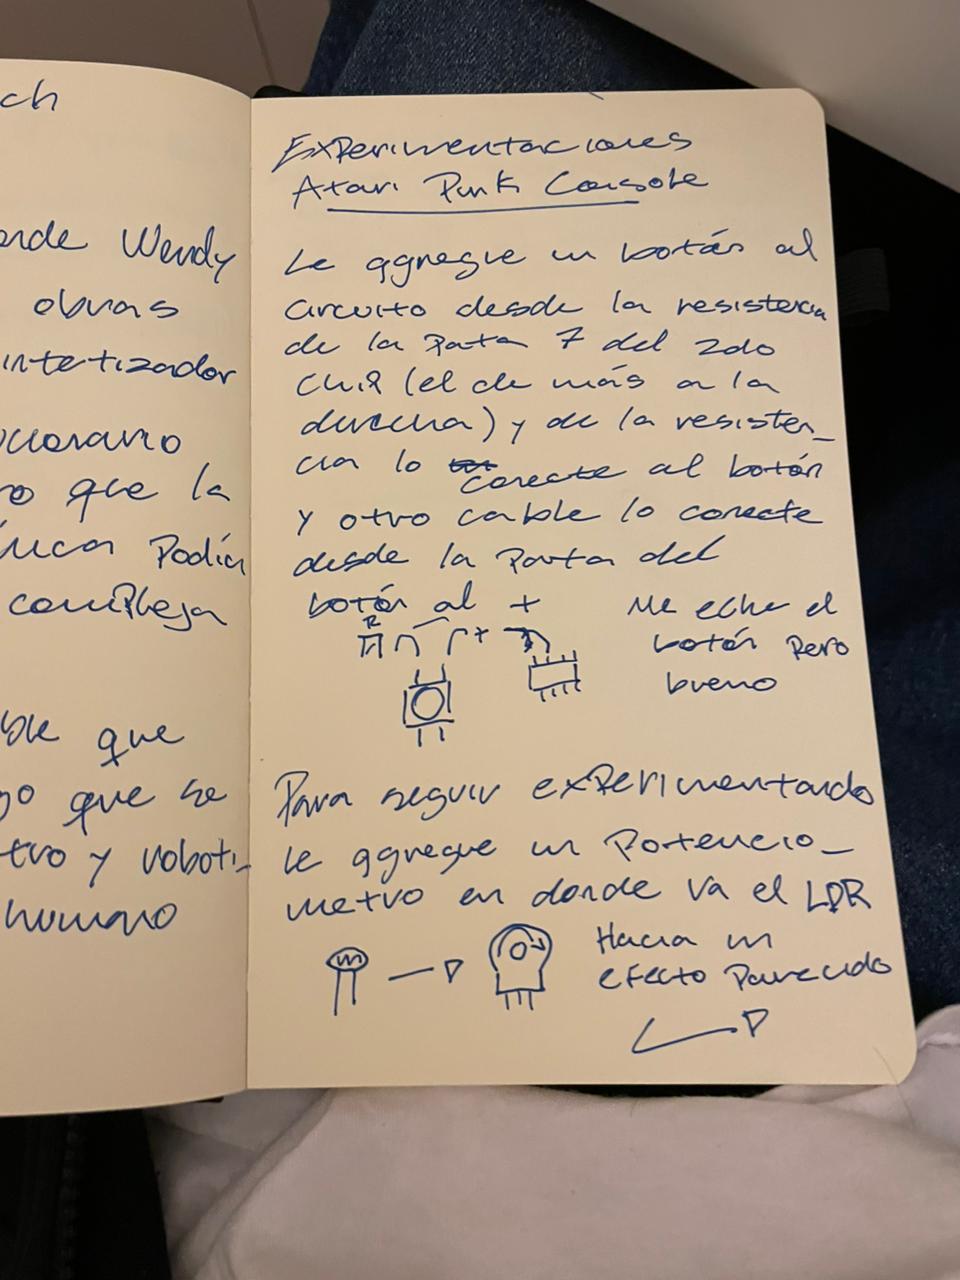 ch
onde Wendy
obras
intetizador
que la
Podía
compleja
ble que
que se
tro y roboti-
humano
Experimentaciones
Atari Punk Console
Le agregue un botón al
circuito desde la resistencia
de la pata 7 del 2do
chip (el de más a la
derecha) y de la resisten_
cia lo conecte al botón
y otro cable lo conecte
desde la pata del
botón al +
R
+
Me eche el
botón pero
bueno
Para seguir experimentando
le agregue un potencio_
metro en donde va el LDR
Hacia un
efecto parecido